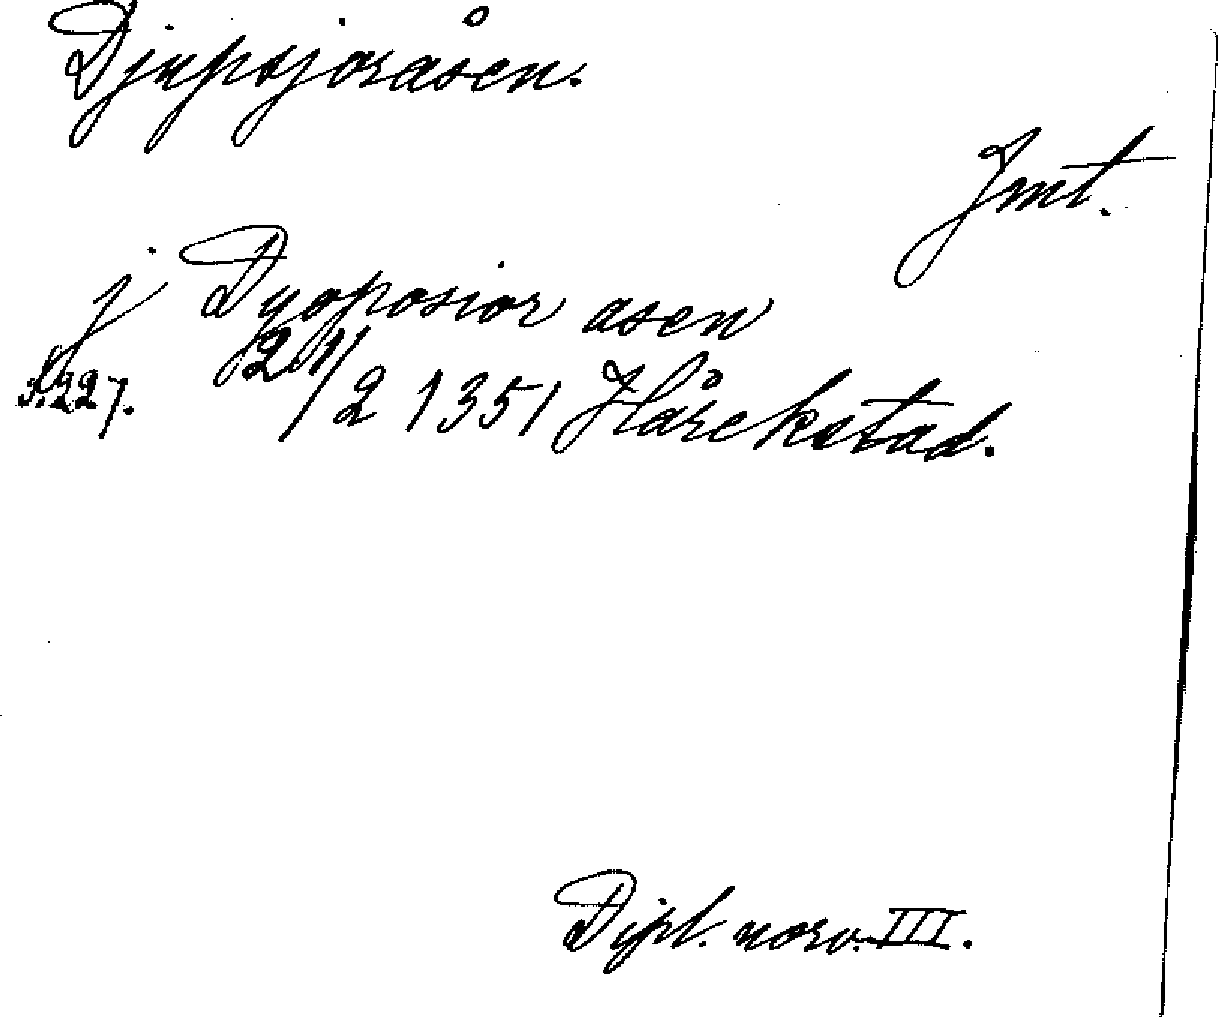 Djupsjoråsen.
Jmt.
j Dyoposior asen
s. 227. 21/2 1351 Hårekstad.
Dipl. norv. III.